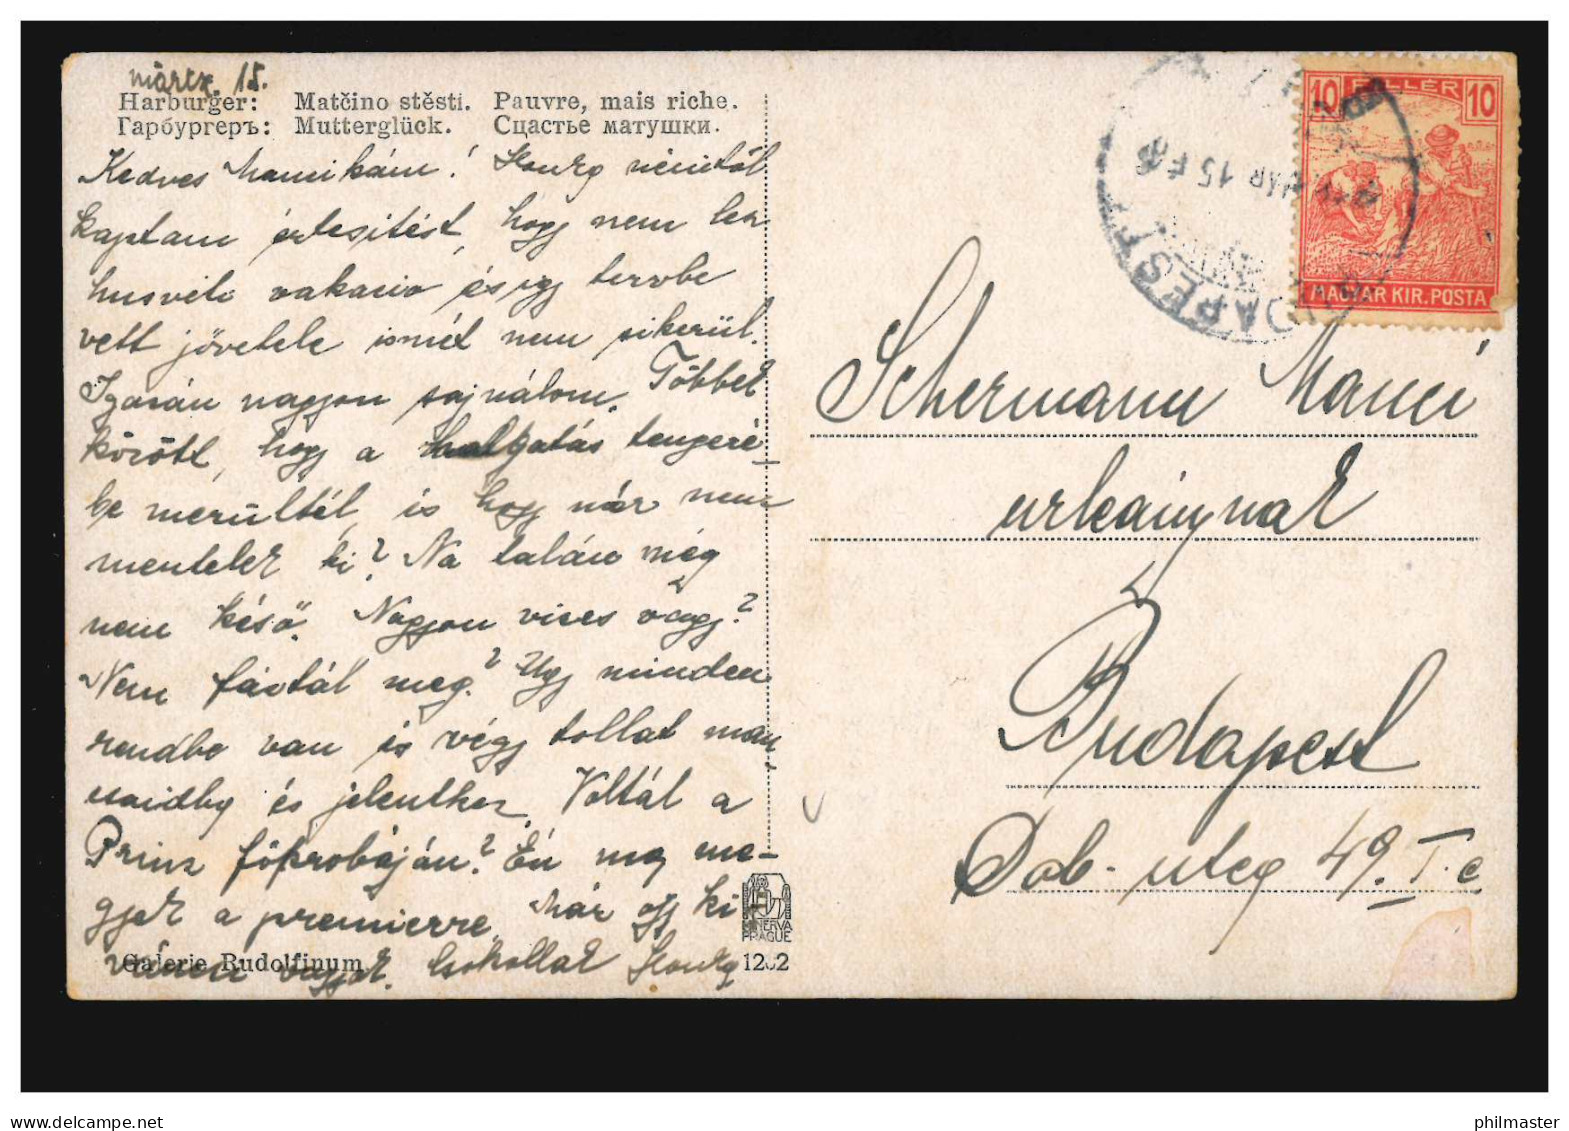 márcz. 15.
Harburger: Matčino stěsti. Pauvre, mais riche.
Гарбургеръ: Mutterglück. Сцастье матушки.
Kedves Mamikám!
kaptam értesitést, hogy nem lesz
husvéti vakacio és igy tervbe
vett jövetele ismét nem sikerül.
Igazán nagyon sajnálom. Többet
között, hogy a hallgatás tengeré-
be merültél, is hogy már nem
mentelek ki? Na talán még
nem késő. Nagyon vices vagy?
Nem fáztál meg? Ugy minden
rendbe van és végy tollat man-
és jelentkez. Voltál a
Prinz főprobáján? Én ma me-
gyek a premierre. Már egy ki
vagyok. Csokollak
Galerie Rudolfinum.
MINERVA
PRAGUE
1202
10 FILLÉR 10
MAGYAR KIR. POSTA
BUDAPEST
MÁR 15
Schermann Manci
urleánynak
Budapest
Dob-utca 49. I. e
philmaster